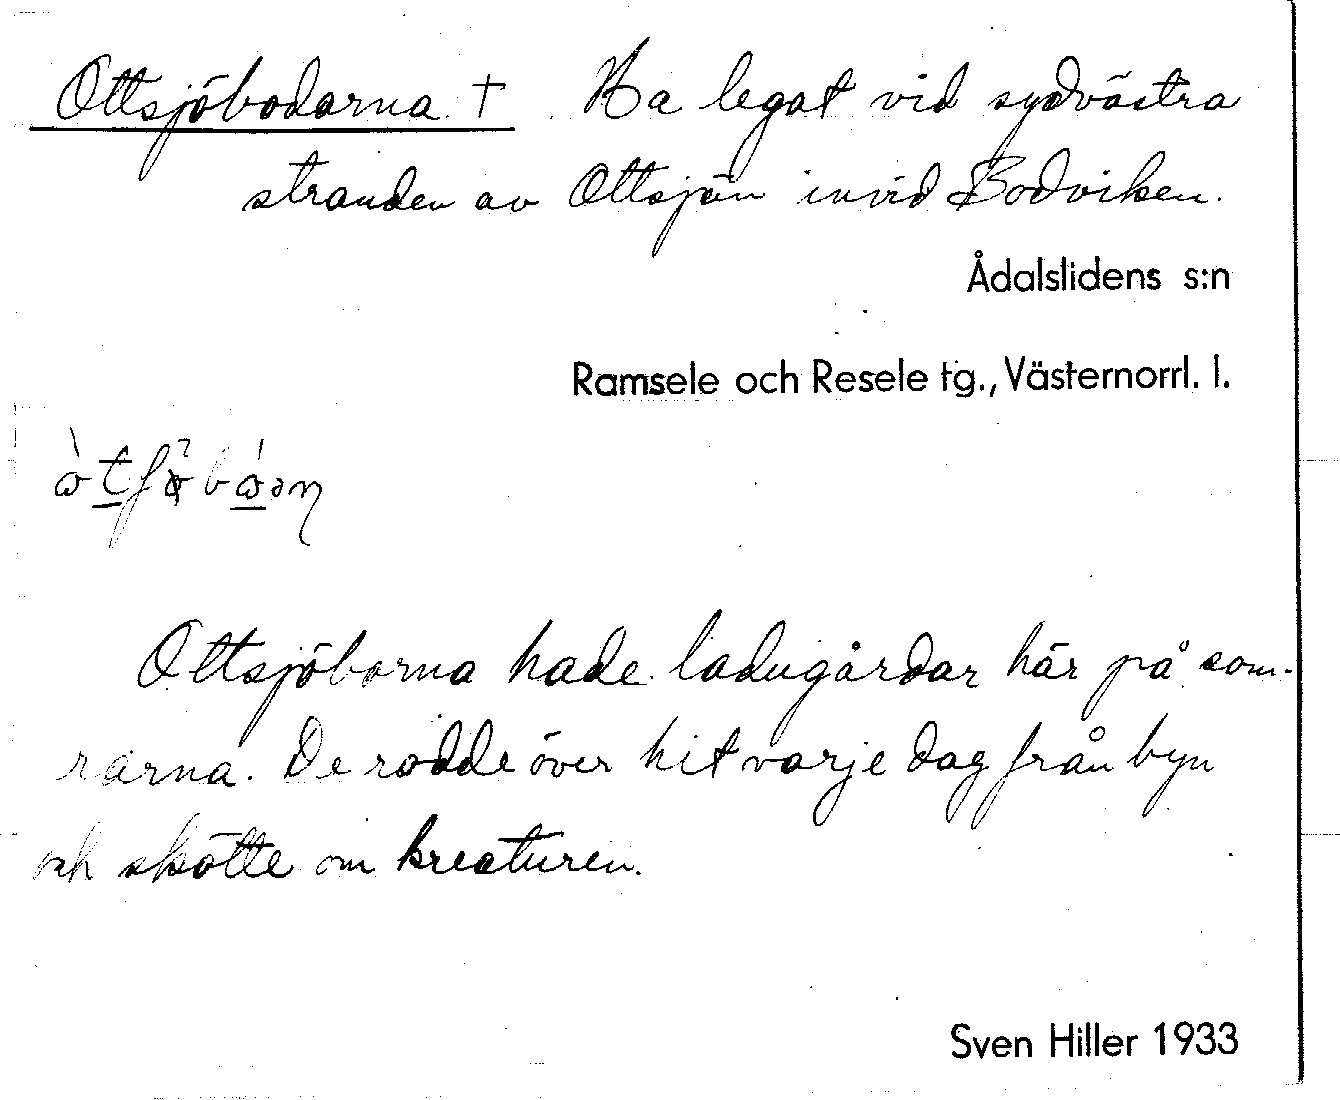 Ottsjöbodarna † Ha legat vid sydvästra
stranden av Ottsjön invid Bodviken.
Ådalslidens s:n
Ramsele och Resele tg., Västernorrl. l.
Ottsjöborna hade ladugårdar här på som-
rarna. De rodde över hit varje dag från byn
och skötte om kreaturen.
Sven Hiller 1933